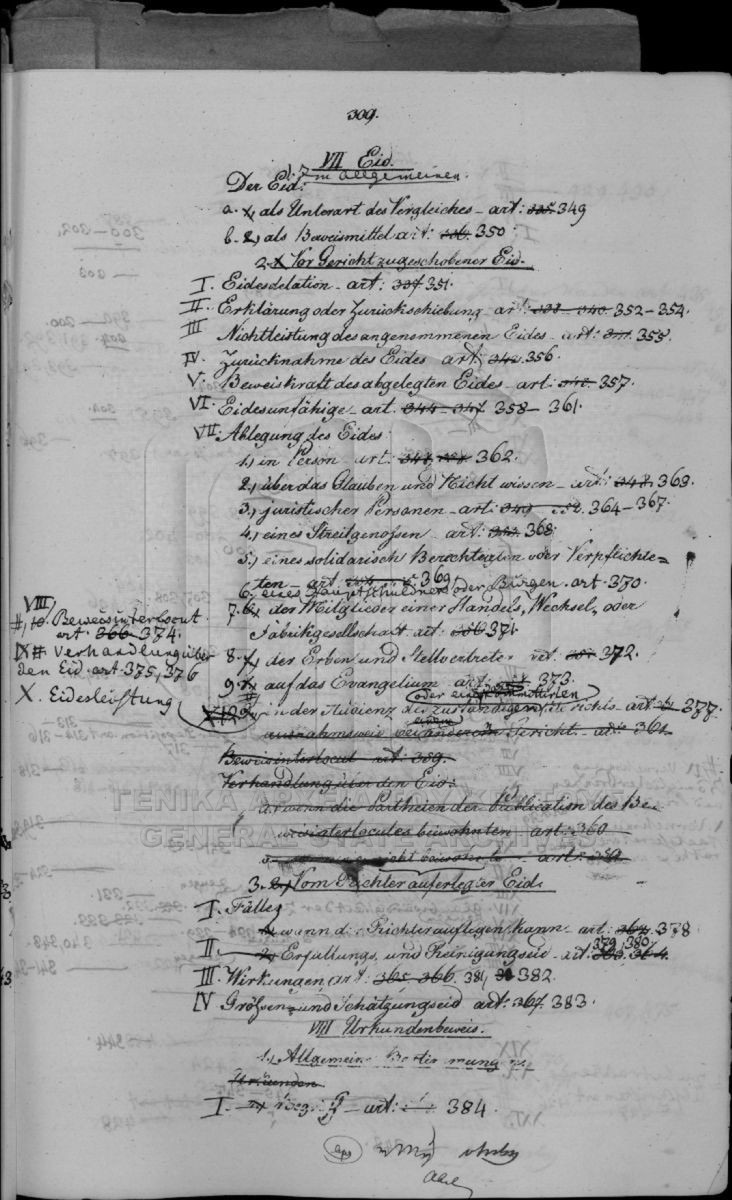 309.
VII Eid.
1. Im allgemeinen.
Der Eid:
a. als Unterart des Vergleiches – art: 335. 349
b. als Beweismittel art: 336. 350.
2. Vor Gericht zugeschobener Eid.
I. Eidesdelation – art: 337 351.
II. Erklärung oder Zurückschiebung – art: 338–340. 352–354.
III Nichtleistung des angenommenen Eides – art: 341. 355.
IV. Zurücknahme des Eides art: 342 356.
V. Beweiskraft des abgelegten Eides – art: 343. 357.
VI. Eidesunfähige – art. 344–347 358–361.
VII. Ablegung des Eides:
1.) in Person – art: 362.
2.) über das Glauben und Nicht wissen – art: 348. 363.
3.) juristischer Personen – art: 349 364–367.
4.) eines Streitgenossen – art: 368.
5.) eines solidarisch Berechtigten oder Verpflichte=
ten – art: 369
6. eines Hauptschuldners oder Bürgen. art. 370.
7. der Mitglieder einer Handels, Wechsel, oder
Fabrikgesellschaft art: 371.
8. der Erben und Stellvertreter art: 372.
9. auf das Evangelium art: 373.
VIII
Beweisinterlocut
art. 366 374.
IX Verhandlung über
den Eid. art. 375, 376
X. Eidesleistung
in der Audienz des zuständigen Gerichts – art: 377.
ausnahmsweise Gericht – art: 361.
Beweisinterlocut art: 359.
Verhandlung über den Eid:
a. wenn die Partheien der Publication des Be=
weisinterlocutes beiwohnten – art: 360
TENIKA
GENERAL STATE ARCHIVES
3. Vom Richter auferlegter Eid.
I. Fälle,
wenn der Richter auflegen kann – art: 362. 378
II – Erfüllungs- und Reinigungseid – art: 379, 380.
III. Wirkungen, art: 365–366. 381, 382.
IV Größen- und Schätzungseid art: 367. 383.
VIII Urkundenbeweis.
1.) Allgemeine Bestimmungen
Urkunden
I. – art: 384.